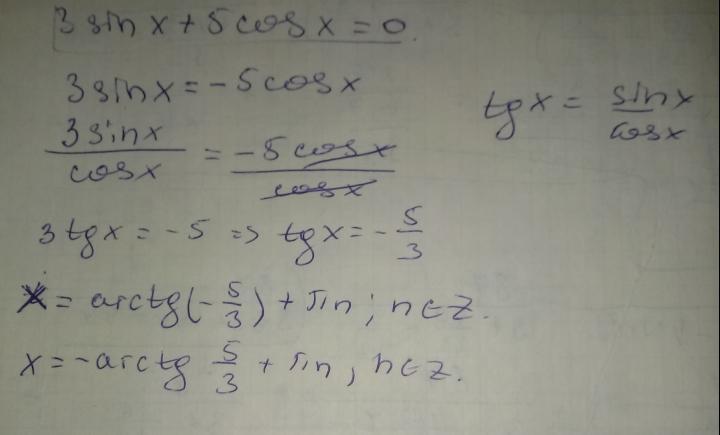 3 sin x + 5 cos x = 0.
3 sin x = -5 cos x
tg x = sin x / cos x
3 sin x / cos x = -5 cos x / cos x
3 tg x = -5 => tg x = - 5/3
x = arctg(- 5/3) + πn; n ∈ Z.
x = -arctg 5/3 + πn, n ∈ Z.